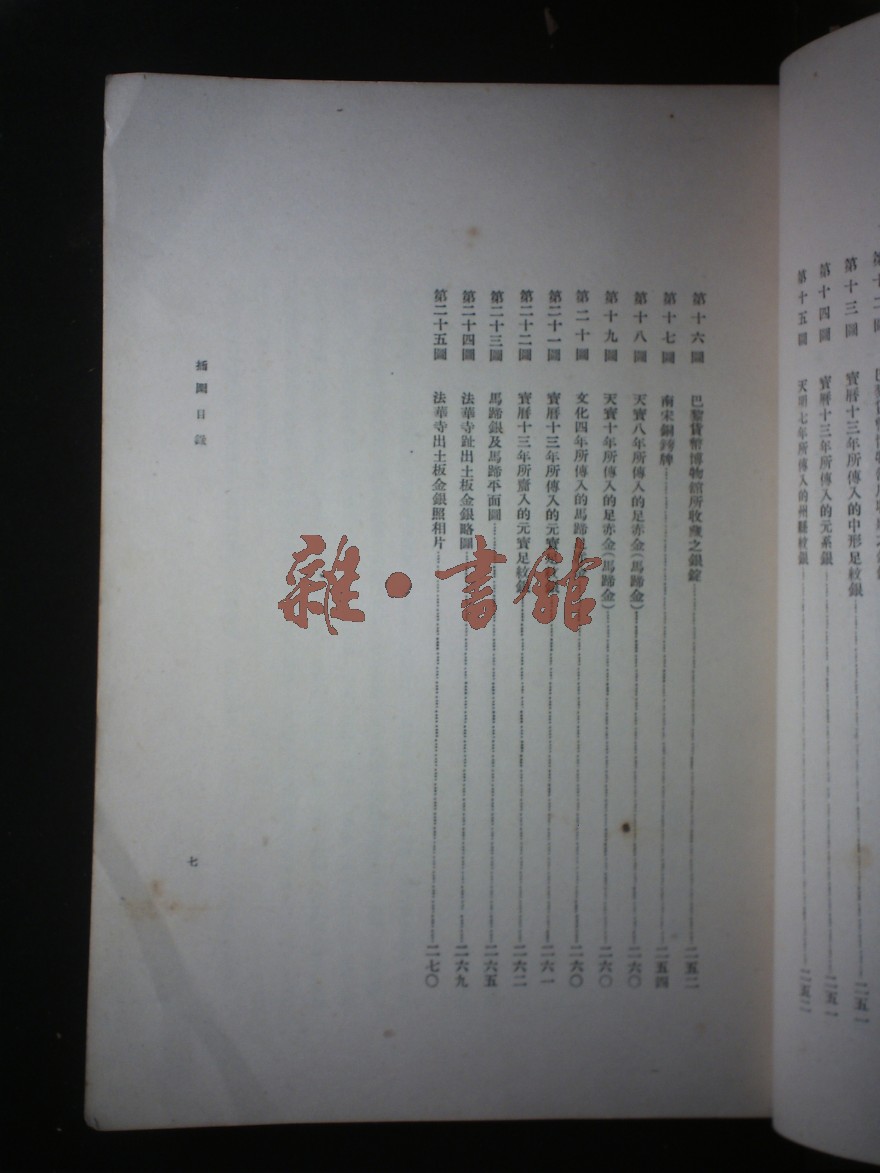 第十三圖 寶曆十三年所傳入的中形足紋銀 二五一
第十四圖 寶曆十三年所傳入的元系銀 二五一
第十五圖 天明七年所傳入的州縣紋銀 二五二
第十六圖 巴黎貨幣博物館所收藏之銀錠 二五二
第十七圖 南宋銅鋳牌 二五四
第十八圖 天寶八年所傳入的足赤金(馬蹄金) 二六〇
第十九圖 天寶十年所傳入的足赤金(馬蹄金) 二六〇
第二十圖 文化四年所傳入的馬蹄 二六〇
第二十一圖 寶曆十三年所傳入的元寶 二六一
第二十二圖 寶曆十三年所齎入的元寶足紋銀 二六二
第二十三圖 馬蹄銀及馬蹄平面圖 二六五
第二十四圖 法華寺趾出土板金銀略圖 二六九
第二十五圖 法華寺出土板金銀照相片 二七〇
插圖目錄 七
雜·書館